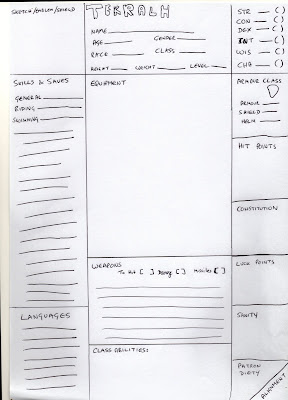 SKETCH/EMBLEM/SHIELD
TEKRALH
NAME
AGE GENDER
RACE CLASS
HEIGHT WEIGHT LEVEL
STR ( )
CON ( )
DEX ( )
INT ( )
WIS ( )
CHA ( )
SKILLS & SAVES
GENERAL
RIDING
SWIMMING
EQUIPMENT
ARMOUR CLASS
ARMOUR
SHIELD
HELM
HIT POINTS
CONSTITUTION
WEAPONS
To Hit [ ] [ ] Missiles [ ]
LUCK POINTS
SANITY
LANGUAGES
CLASS ABILITIES:
PATRON
DIETY
ALIGNMENT